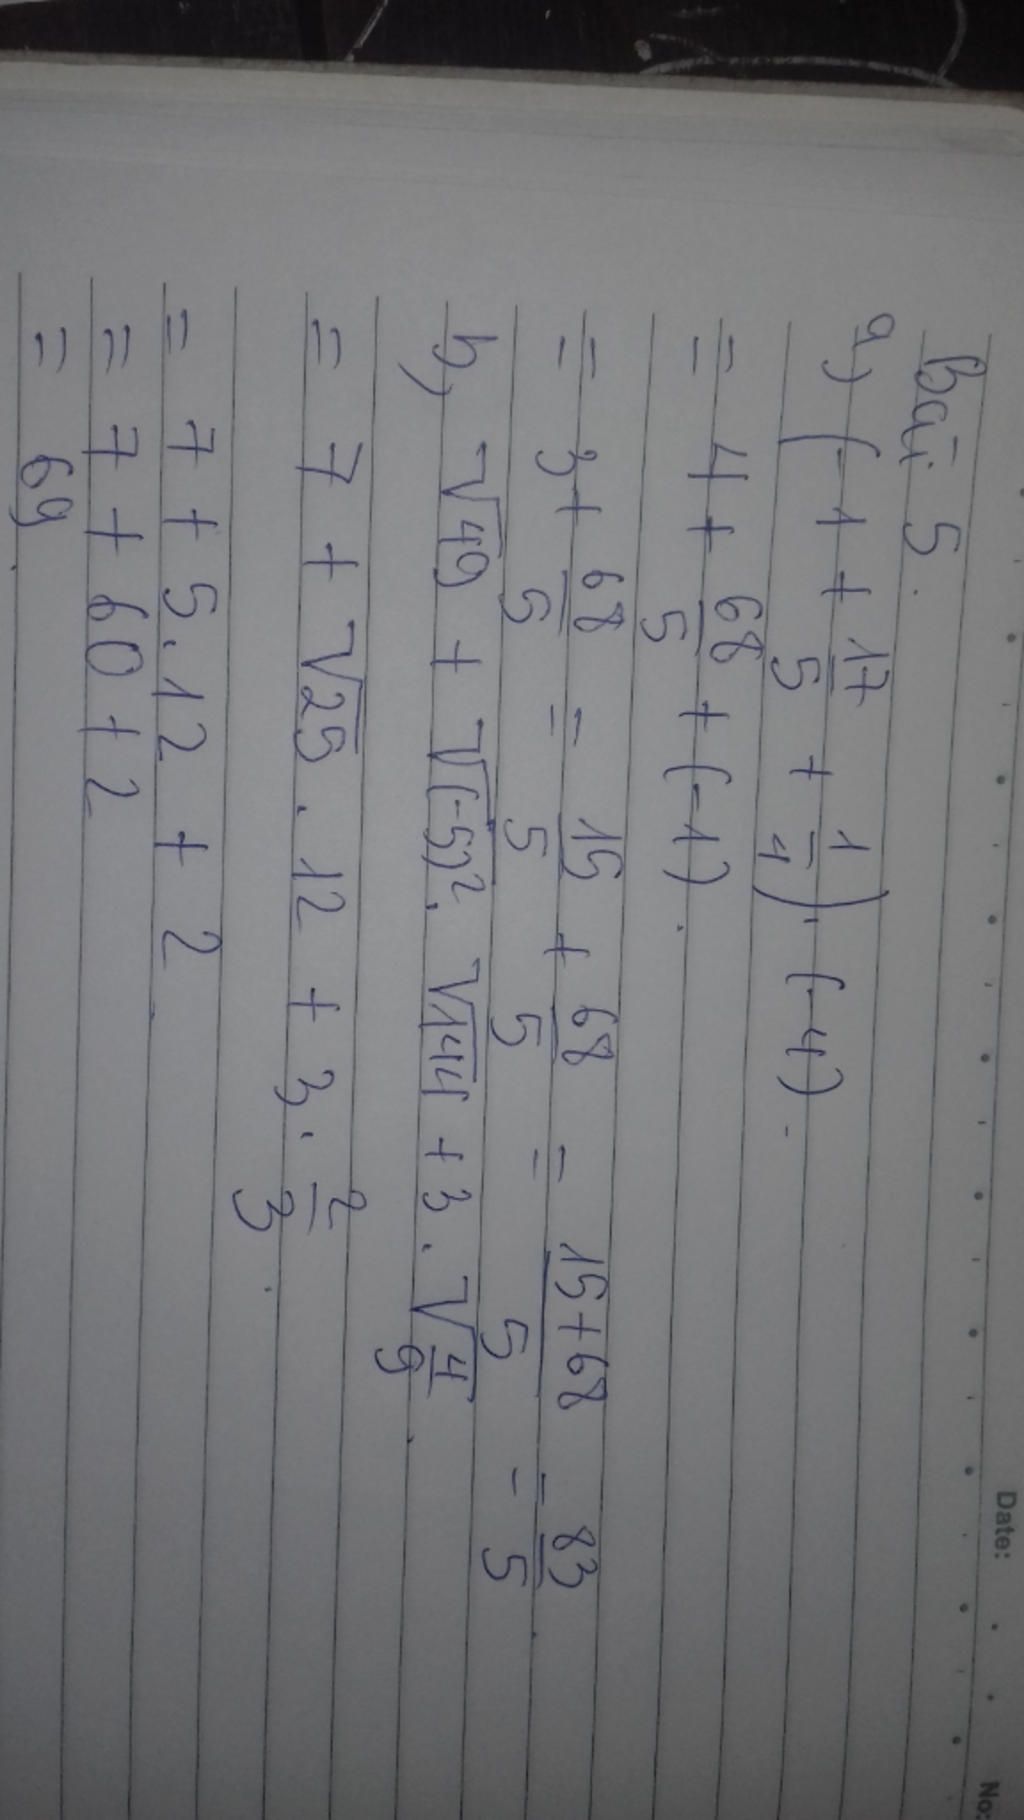 Date: No:
Bài 5.
a) (-1 + 17/5 + 1/4) . (-4) .
= 4 + 68/5 + (-1) .
= 3 + 68/5 = 15/5 + 68/5 = 15+68/5 = 83/5 .
b, √49 + √(-5)² . √144 + 3 . √4/9 .
= 7 + √25 . 12 + 3 . 2/3 .
= 7 + 5.12 + 2 .
= 7 + 60 + 2
= 69